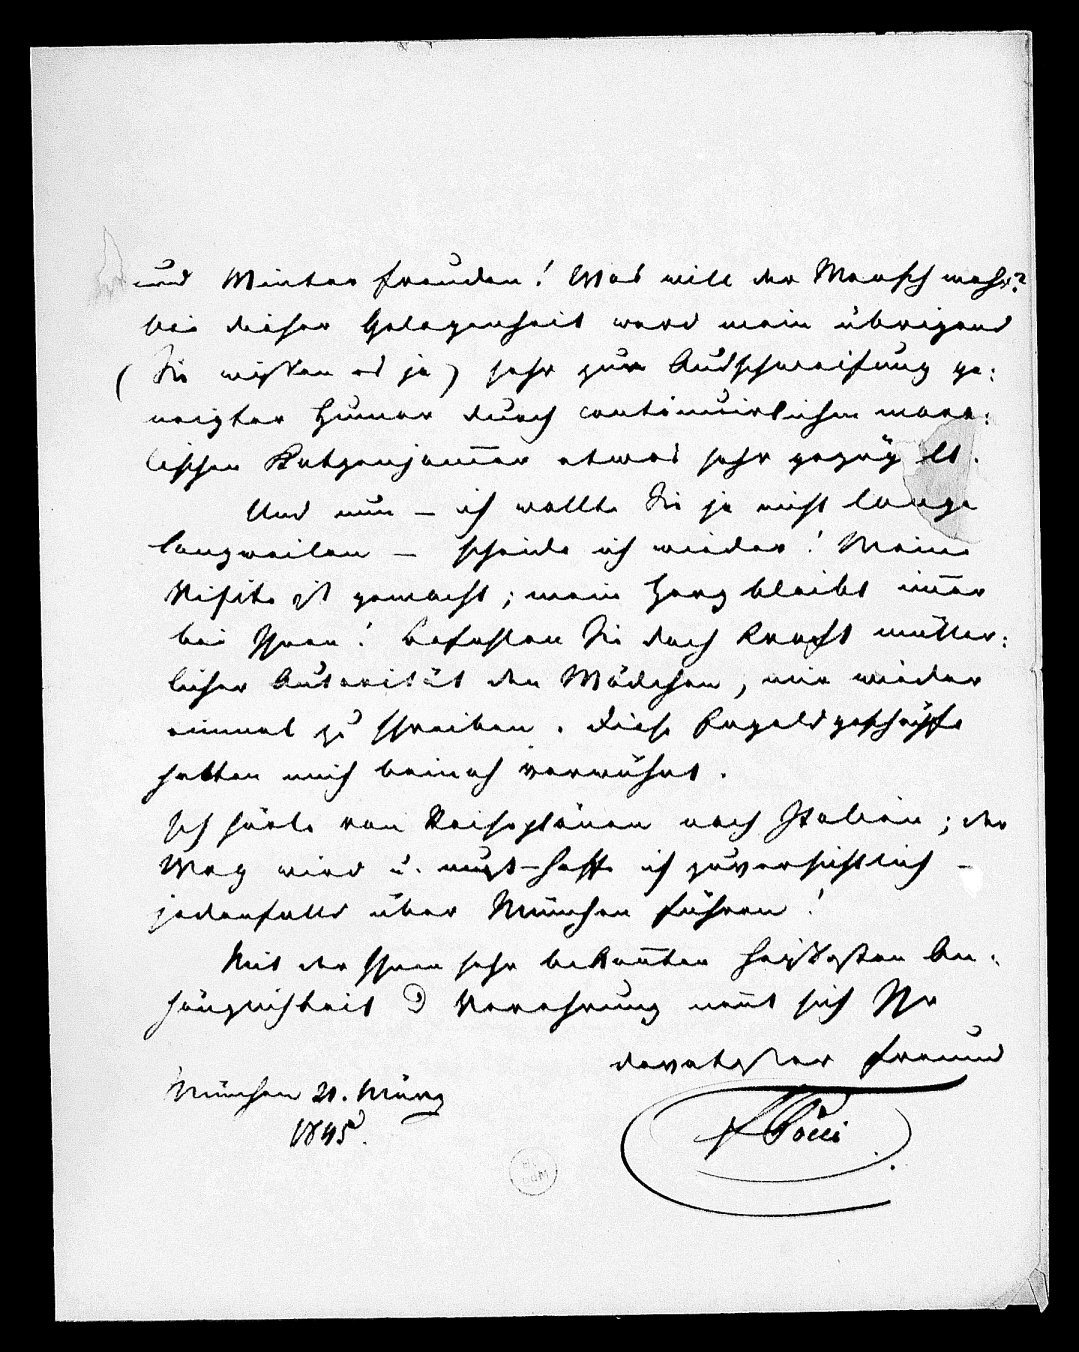 und Winter freuden! Was will der Mensch mehr?
bei dieser Gelegenheit ward mein übrigens
(Sie wissen es ja) sehr zur Ausschweifung ge:
neigter Humor durch continuirlichen mora:
lischen Katzenjammer etwas sehr gezügelt.
Und nun – ich wollte Sie ja nicht lange
langweilen – scheide ich wieder! Meine
Visite ist gemacht; mein Herz bleibt immer
bei Ihnen! Befehlen Sie doch Kraft mütter:
licher Autorität den Mädchen, mir wieder
einmal zu schreiben. Diese
hatten mich beinah verwöhnt.
Ich hörte von Reiseplänen nach Italien; der
Weg wird u. muß – hoffe ich zuversichtlich –
jedenfalls über München führen!
Mit der Ihnen sehr bekannten herzlichsten An:
hänglichkeit & Verehrung nennt sich Ihr
devotester Freund
München 21. März
1845.
F Pocci